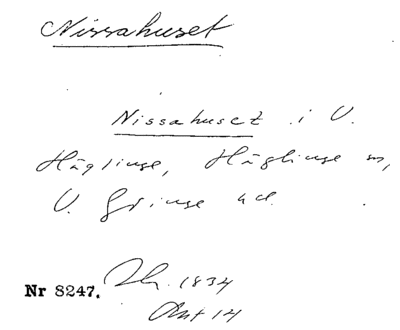 Nissahuset
Nissahuset i V.
Häglinge, Häglinge sn,
V. Göinge hd.
Nr 8247. 1834
Akt 14